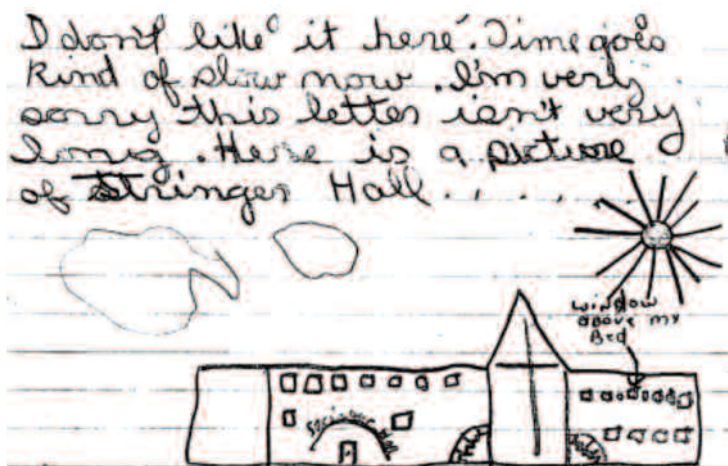 I don't like it here. Time goes
kind of slow now. I'm very
sorry this letter isn't very
long. Here is a picture
of Stringer Hall......
window
above my
Bed